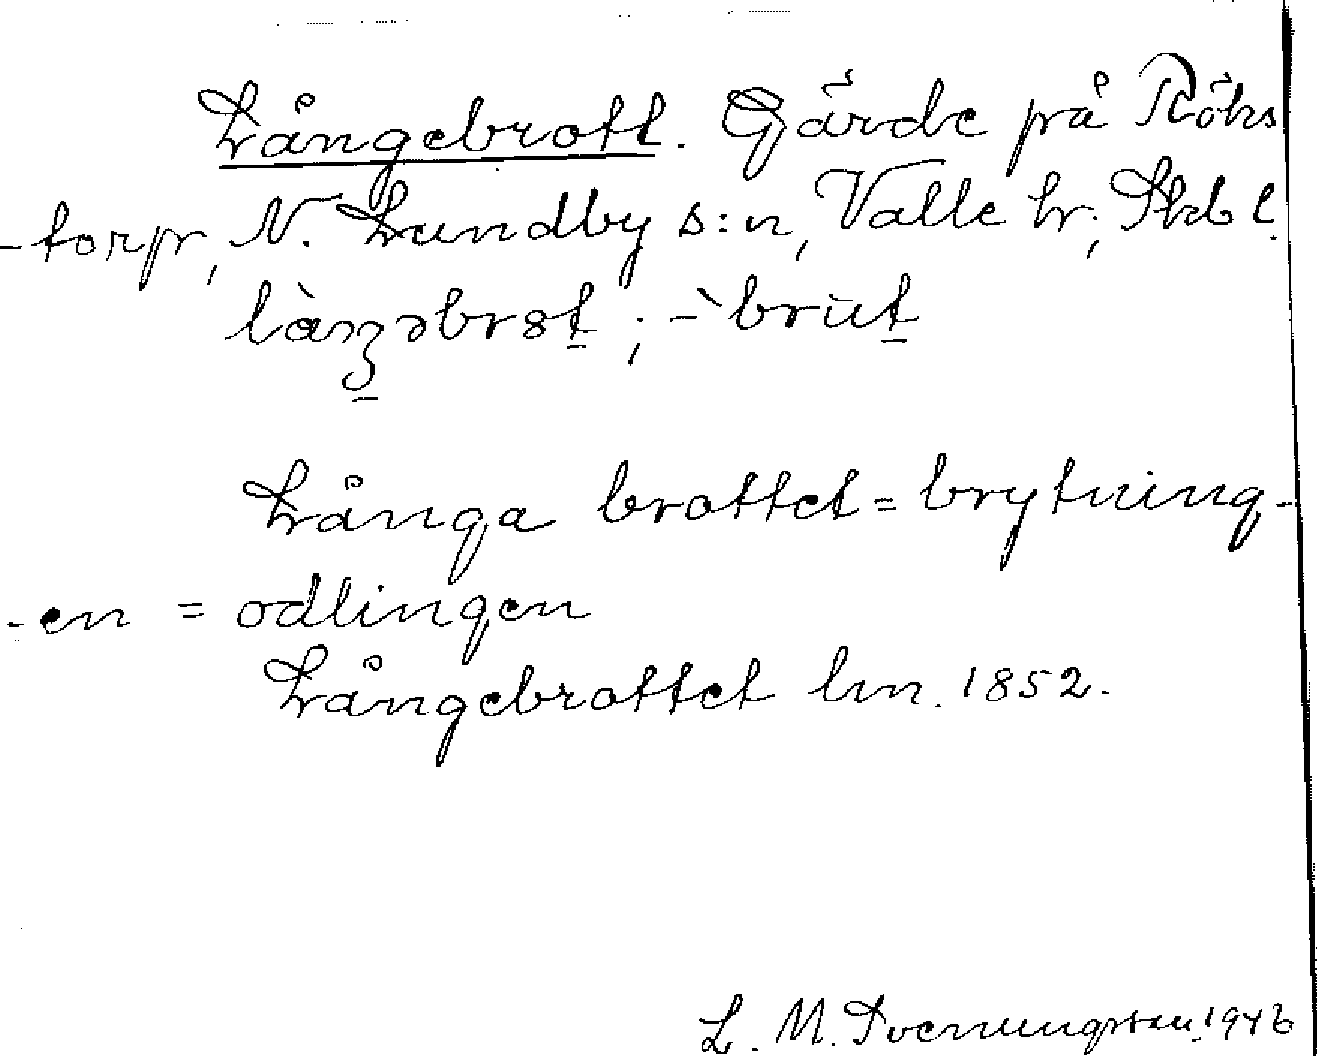 Långebrott. Gärde på Röks
-torp, N. Lundby s:n, Valle hr; Skbl.
làŋəbrɞt; -̀brut
Långa brottet = brytning-
-en = odlingen
Långebrottet lm. 1852.
L. M. Svenungsson 1946